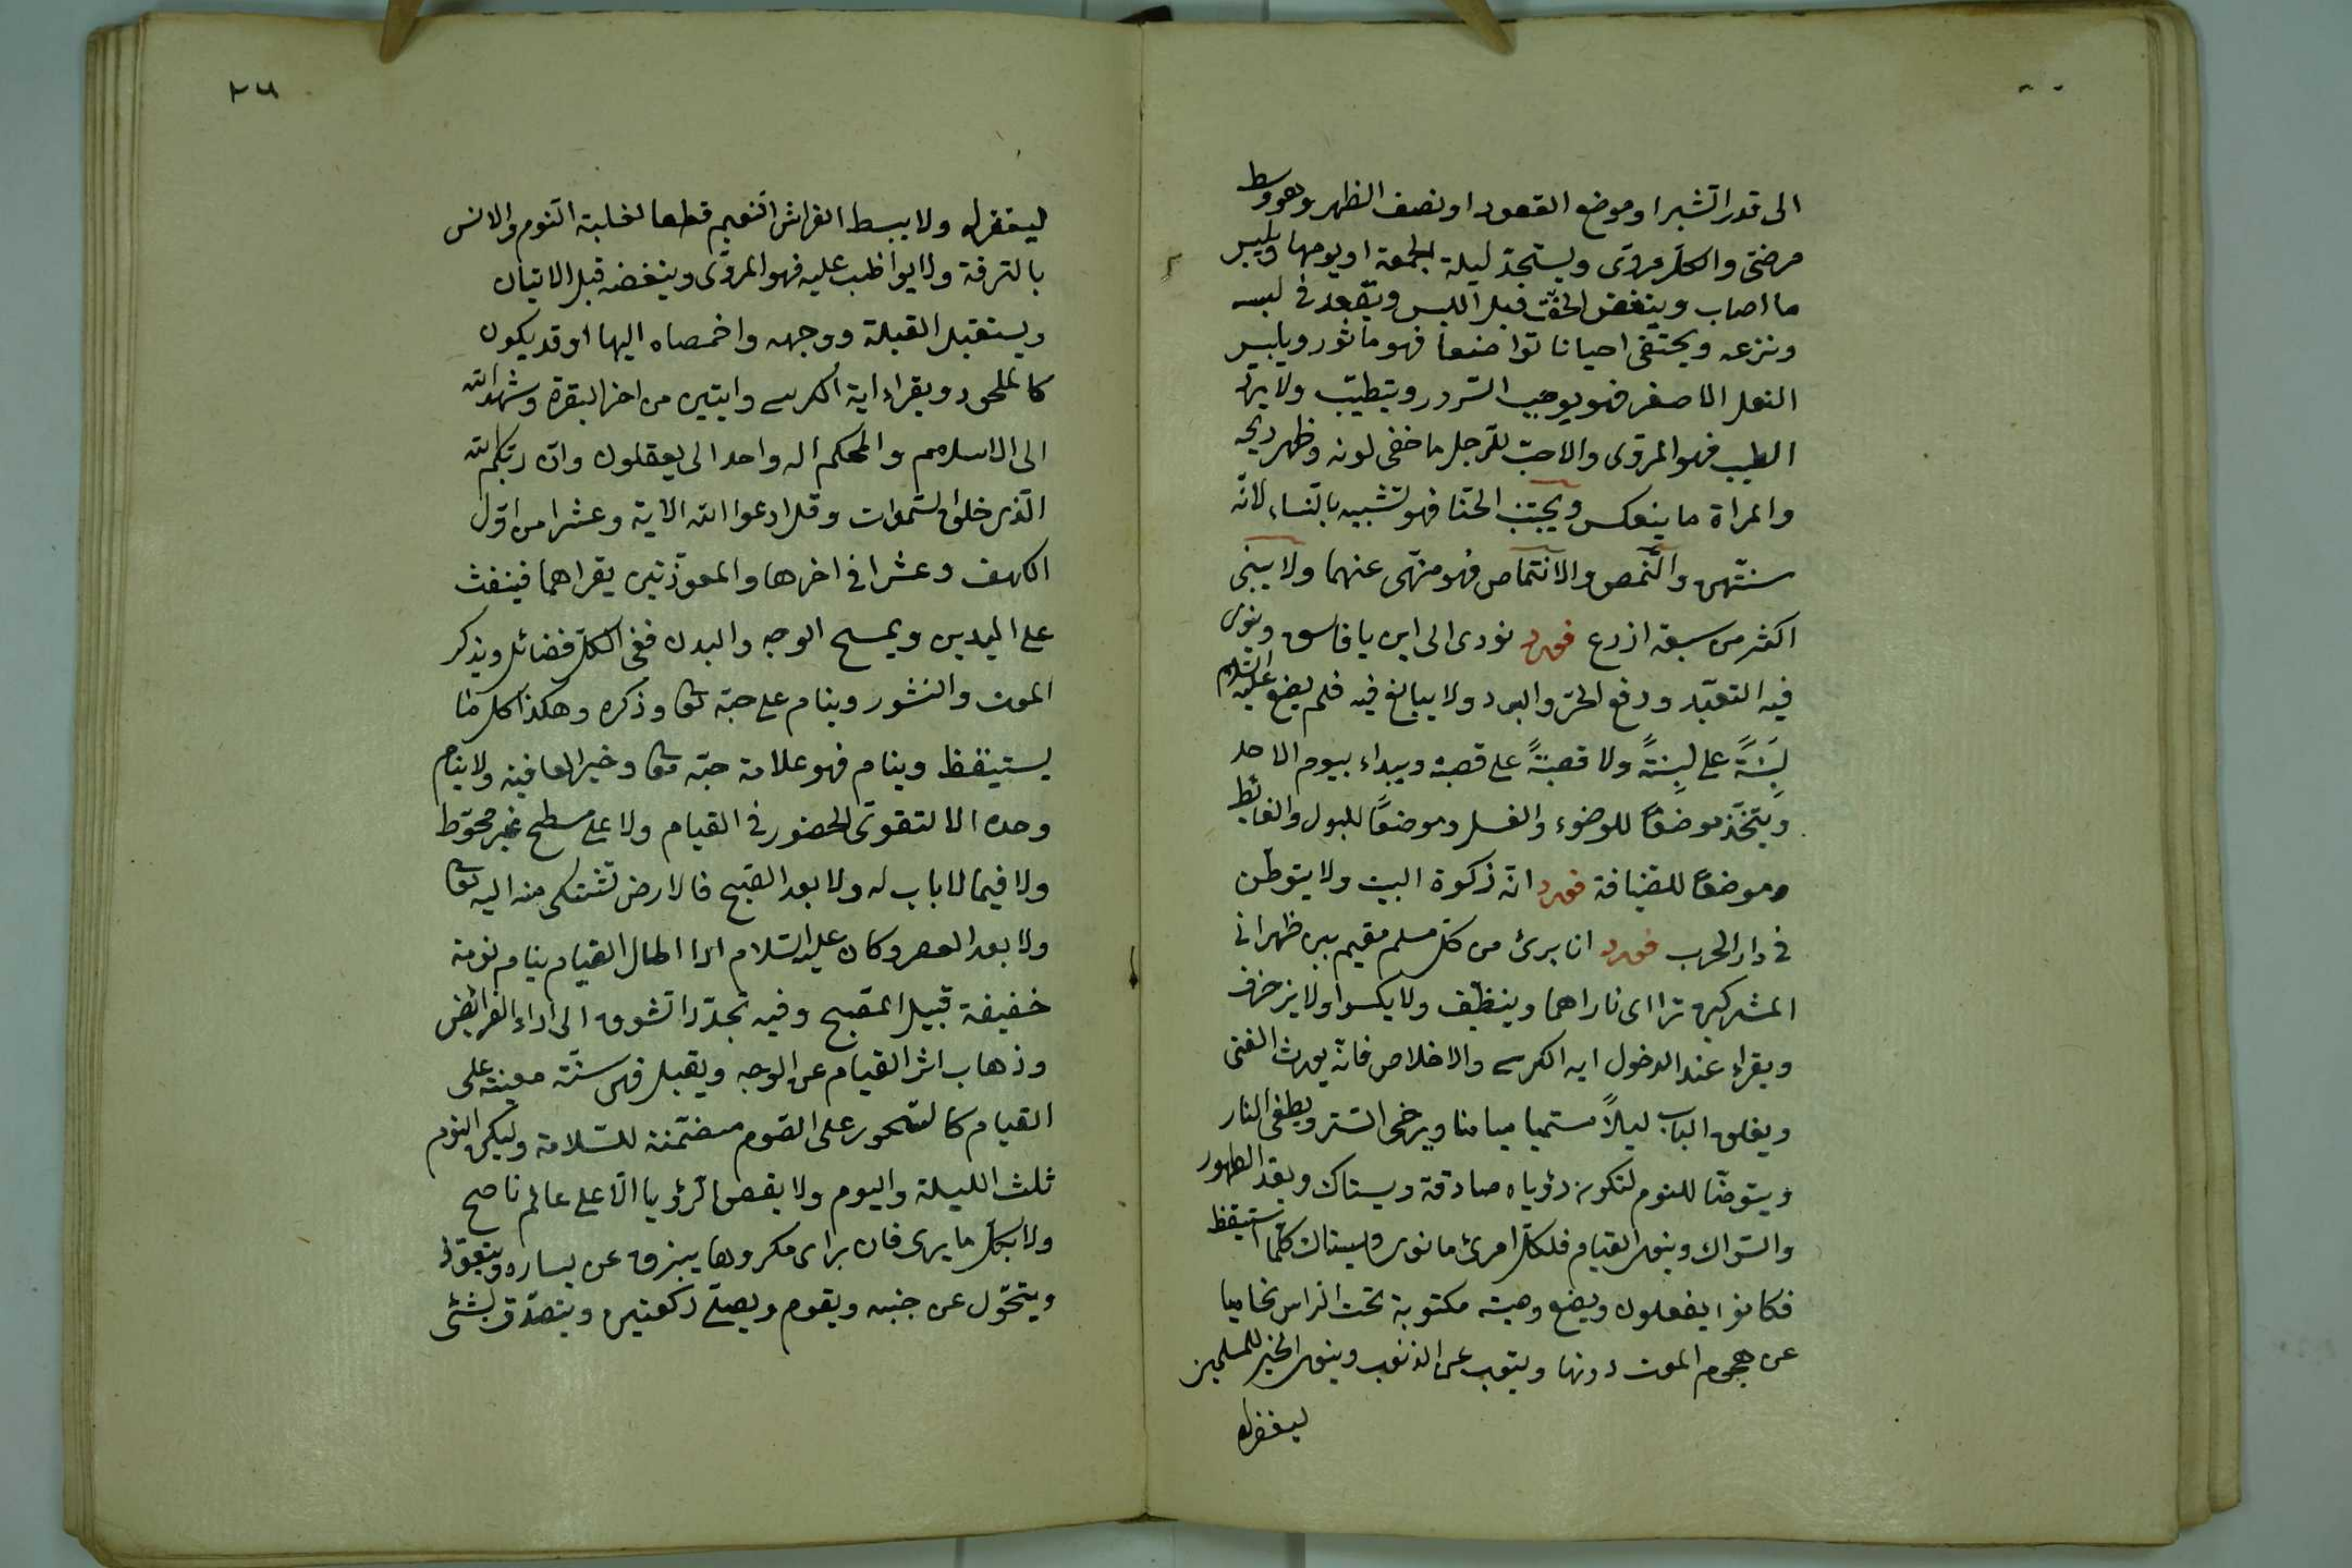 الى قدر الشبر او موضع القعود او نصف الظهر وهو وسط
مرضى والكل مروى ويستجد ليلة الجمعة او يومها ويلبس
ما اصاب وينفض الخف قبل اللبس ويقعد فى لبسه
ونزعه ويحتفى احيانا تواضعا فهو ماثور ويلبس
النعل الاصفر فهو يوجب السرور ويتطيب ولا يرد
الطيب فهو المروى والاحب للرجل ما خفى لونه وظهر ريحه
والمراة ما ينعكس ويجتنب الحنا فهو تشبيه بالنساء لانه
سنتهن والنمص والانتماص فهو منهى عنهما ولا يبنى
اكثر من سبعة اذرع فورد نودى الى اين يا فاسق وينوى
فيه التعبد ودفع الحر والبرد ولا يبالغ فيه فلم يضع عليه السلام
لبنة على لبنة ولا قصبة على قصبة ويبداء بيوم الاحد
ويتخذ موضعا للوضوء والغسل وموضعا للبول والغائط
وموضعا للضيافة فورد انه زكوة البيت ولا يتوطن
فى دار الحرب فورد انا برئ من كل مسلم مقيم بين ظهرانى
المشركين تراای ناراهما وينظف ولا يكسوا ولا يزخرف
ويقراء عند الدخول اية الكرسى والاخلاص فانه يورث الغنى
ويغلق الباب ليلا مسميا ميامنا ويرخى الستر ويطفى النار
ويتوضا للنوم لتكون رؤياه صادقة ويستاك ويعد الطهور
والسواك وينوى القيام فلكل امرئ ما نوى ويستاك كلما استيقظ
فكانوا يفعلون ويضع وصيته مكتوبة تحت الراس تحاميا
عن هجوم الموت دونها ويتوب عن الذنوب وينوى الخير للمسلمين
ليغفر له
٢٦
ليغفر له ولا يبسط الفراش النعيم قطعا لغلبة النوم والانس
بالترفة ولا يواظب عليه فهو المروى وينفضه قبل الاتيان
ويستقبل القبلة ووجهه واخمصاه اليها او قد يكون
كالملحود ويقراء اية الكرسى وايتين من اخر البقرة وشهد الله
الى الاسلام والهكم اله واحد الى يعقلون وان ربكم الله
الذى خلق السموات وقل ادعوا الله الاية وعشرا من اول
الكهف وعشرا فى اخرها والمعوذتين يقراهما فينفث
على اليدين ويمسح الوجه والبدن ففى الكل فضائل ويذكر
الموت والنشور وينام على حبه تعا وذكره وهكذا كل ما
يستيقظ وينام فهو علامة حبه تعا وخير العافية ولا ينام
وحده الا لتقوى الحضور فى القيام ولا على سطح غير محوط
ولا فيما لا باب له ولا بعد الصبح فالارض تشتكى منه اليه تعا
ولا بعد العصر وكان عليه السلام اذا اطال القيام ينام نومة
خفيفة قبيل الصبح وفيه تجدد الشوق الى اداء الفرائض
وذهاب اثر القيام عن الوجه ويقبل فهى سنة معينة على
القيام كالسحور على الصوم متضمنة للسلامة وليكن النوم
ثلث الليلة واليوم ولا يقص الرؤيا الا على عالم ناصح
ولا بكل ما يرى فان يراى مكروها يبزق عن يساره ويتعوذ
ويتحول عن جنبه ويقوم ويصلى ركعتين ويتصدق بشئ